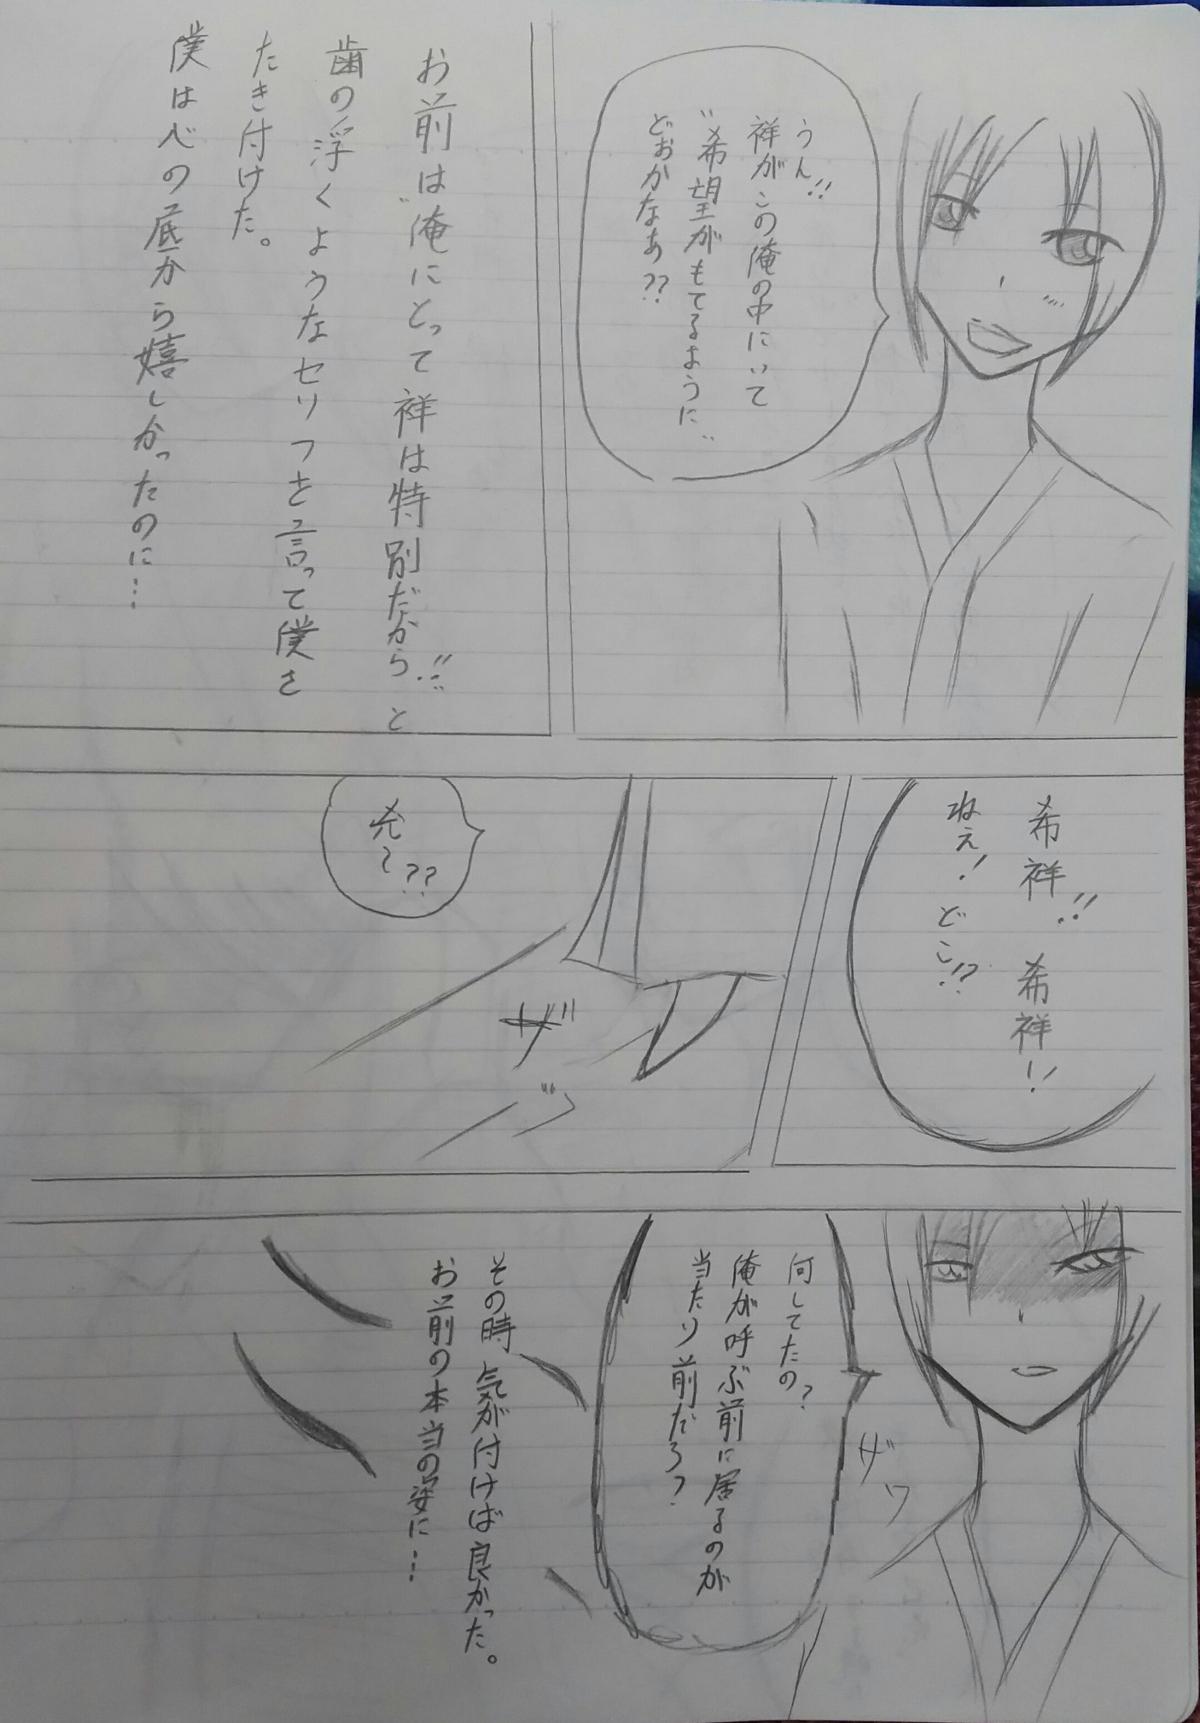 うん!!
祥がこの俺の中にいて
"希望がもてるように"
どおかなあ??
お前は"俺にとって祥は特別だから!!"と
歯の浮くようなセリフを言って僕を
たき付けた。
僕は心の底から嬉しかったのに…
希祥!! 希祥!!
ねぇ! どこ!?
ザッ
何してたの?
俺が呼ぶ前に居るのが
当たり前だろ?
ザワ
その時、気が付けば良かった。
お前の本当の姿に…